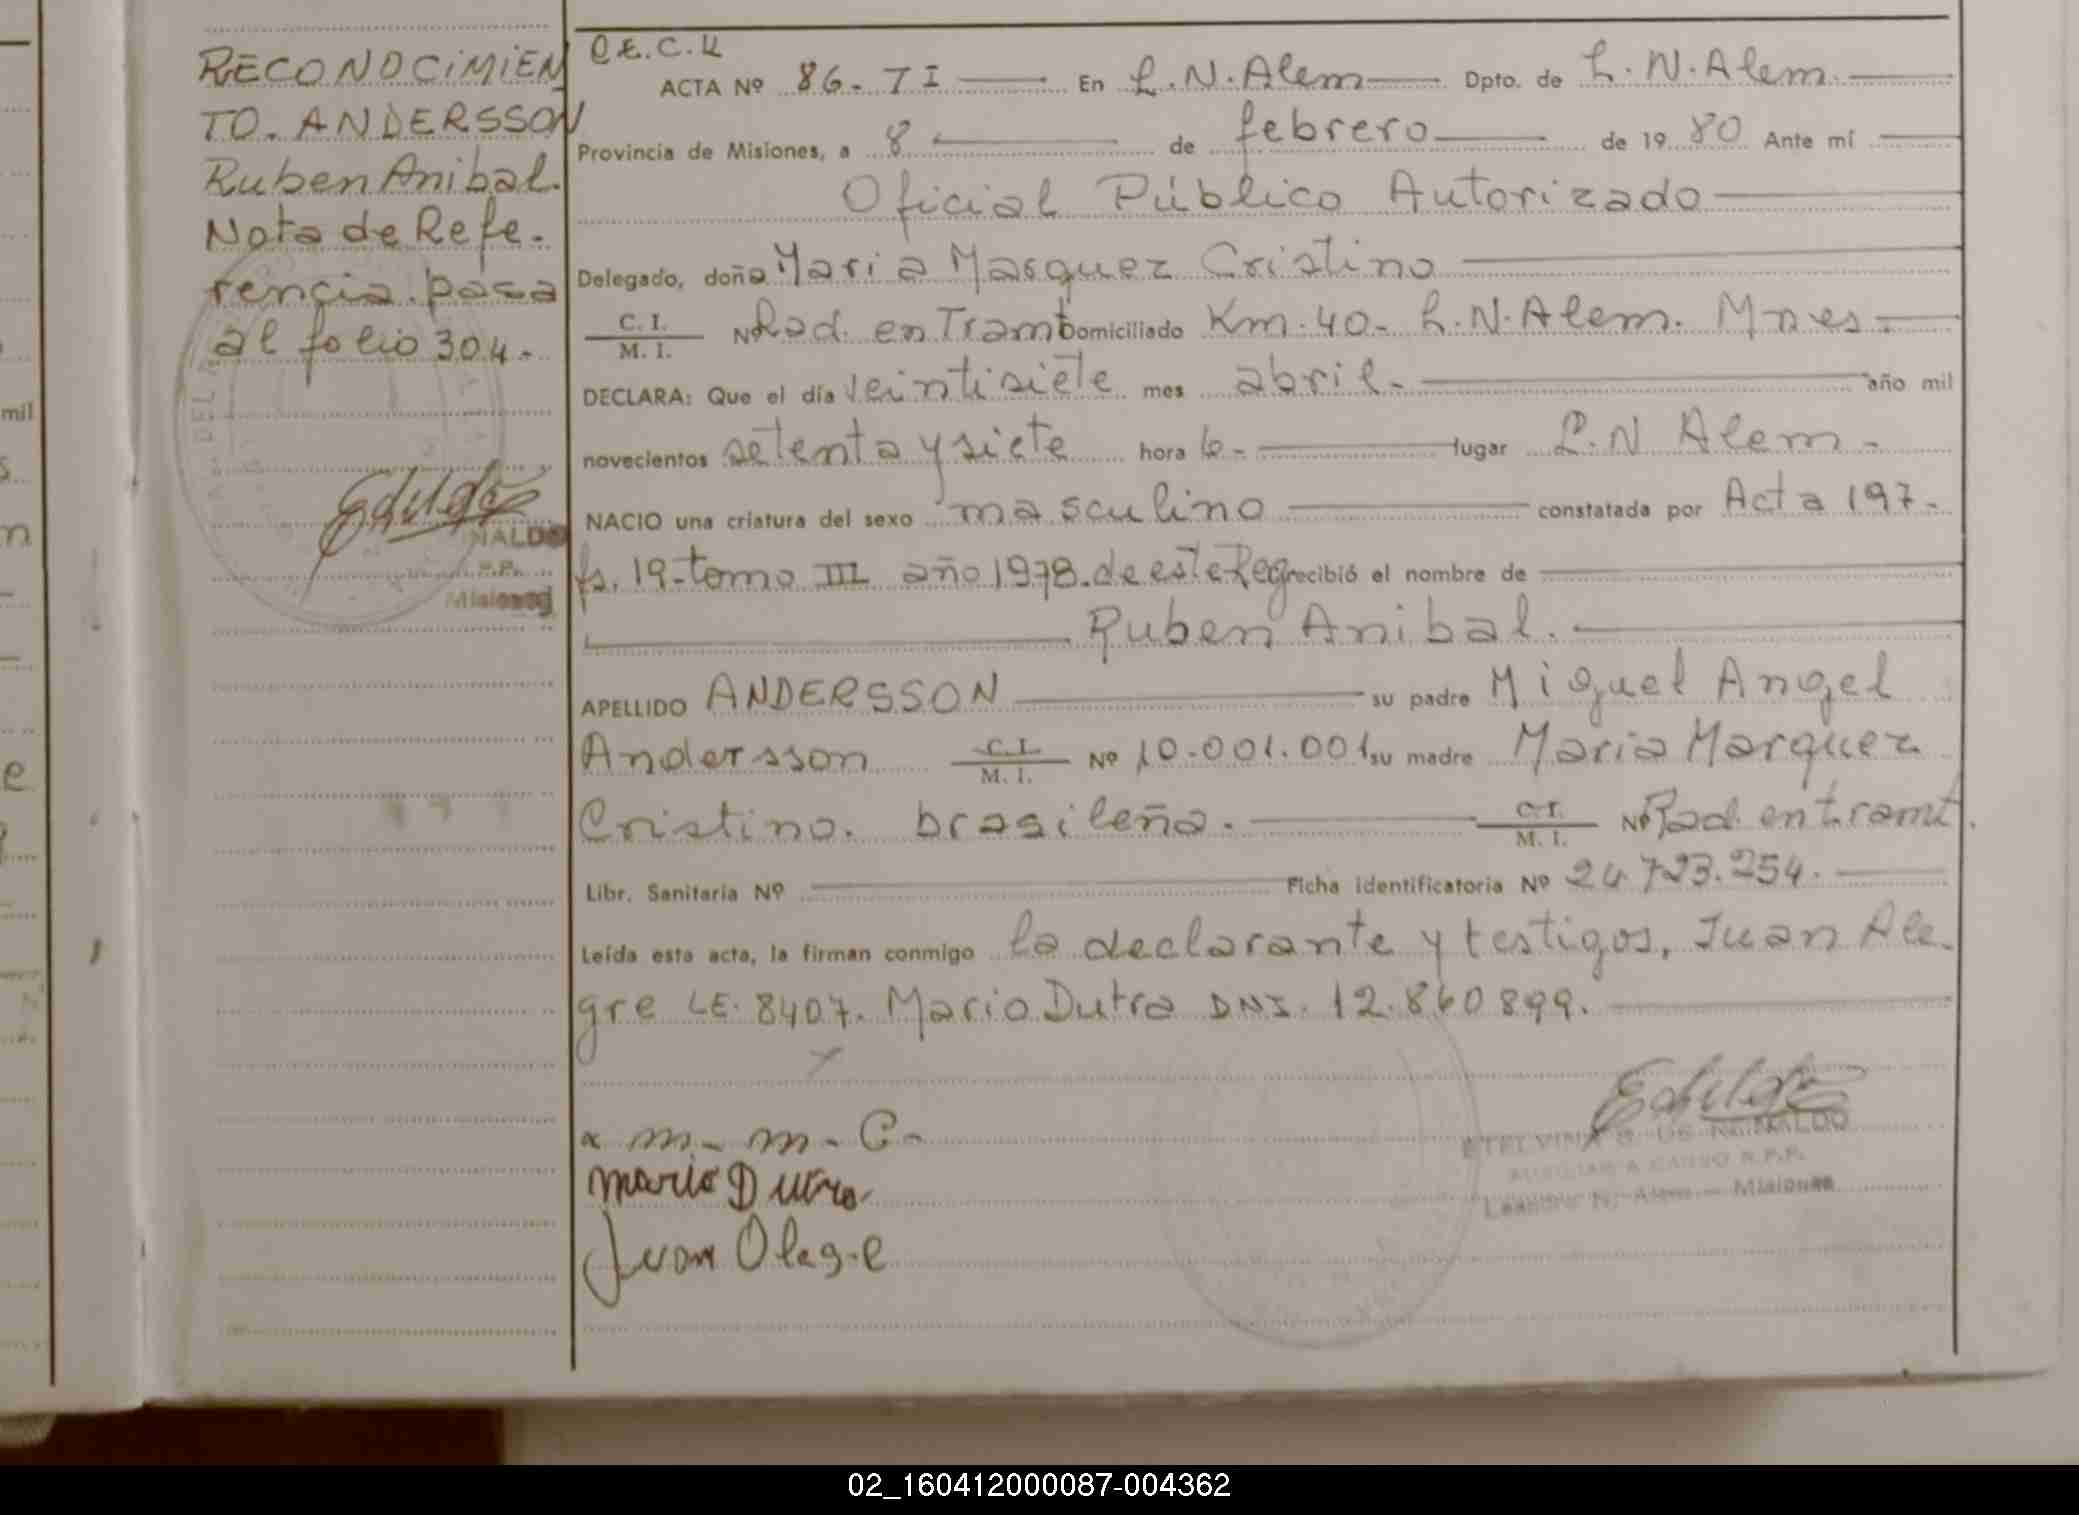 RECONOCIMIEN
TO. ANDERSSON
Ruben Anibal.
Nota de Refe-
rencia. pasa
al folio 304.-
NALDO
Misiones
C.E.C.K
ACTA Nº 86. TI En L.N.Alem Dpto. de L.N.Alem.
Provincia de Misiones, a 8 de febrero de 1980 Ante mí
Oficial Público Autorizado
Delegado, doña Maria Marquez Cristino
C. I. / M. I. Nº Rad. en Tramt Domiciliado Km. 40- L.N.Alem. Mnes-
DECLARA: Que el día veintisiete mes abril.- año mil
novecientos setenta y siete hora 6- lugar L.N Alem-
NACIO una criatura del sexo masculino constatada por Acta 197-
fs. 19-tomo III año 1978. de este Reg recibió el nombre de
Ruben Anibal.
APELLIDO ANDERSSON su padre Miguel Angel
Andersson C. I. / M. I. Nº 10.001.001 su madre Maria Marquez
Cristino. brasileña. C. I. / M. I. Nº Rad en tramt.
Libr. Sanitaria Nº Ficha identificatoria Nº 24.723.254.
Leída esta acta, la firman conmigo la declarante y testigos, Juan Ale-
gre LE. 8407. Mario Dutra DNI. 12.860899.
x m- m- C-
Mario Dutra
Juan Olegre
ETELVINA S. DE REINALDO
AUXILIAR A CARGO R.P.P.
Leandro N. Alem - Misiones
02_160412000087-004362